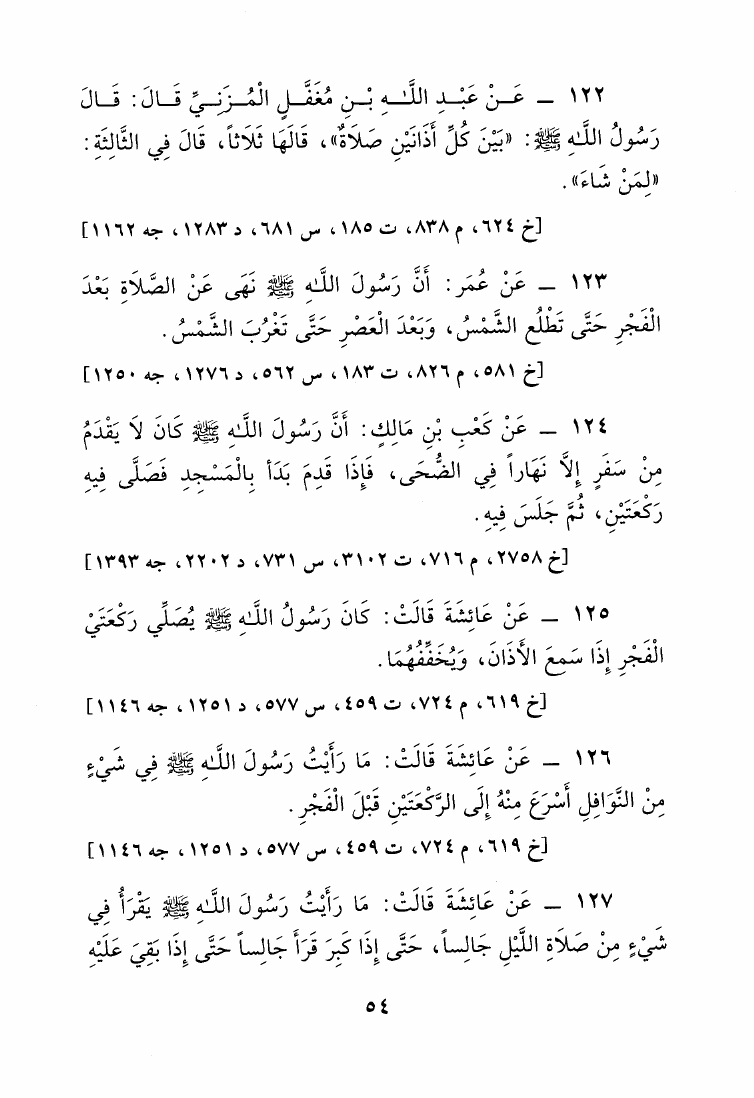 ١٢٢ ـ عَـنْ عَبْـدِ اللَّـهِ بْـنِ مُغَفَّـلٍ الْمُـزَنِـيِّ قَـالَ: قَـالَ
رَسُولُ اللَّهِ ﷺ: «بَيْنَ كُلِّ أَذَانَيْنِ صَلَاةٌ»، قَالَهَا ثَلَاثاً، قَالَ فِي الثَّالِثَةِ:
«لِمَنْ شَاءَ».
[خ ٦٢٤، م ٨٣٨، ت ١٨٥، س ٦٨١، د ١٢٨٣، جه ١١٦٢]
١٢٣ ـ عَنْ عُمَر: أَنَّ رَسُولَ اللَّهِ ﷺ نَهَى عَنْ الصَّلَاةِ بَعْدَ
الْفَجْرِ حَتَّى تَطْلُع الشَّمْسُ، وَبَعْدَ الْعَصْرِ حَتَّى تَغْرُبَ الشَّمْسُ.
[خ ٥٨١، م ٨٢٦، ت ١٨٣، س ٥٦٢، د ١٢٧٦، جه ١٢٥٠]
١٢٤ ـ عَنْ كَعْبِ بْنِ مَالِكٍ: أَنَّ رَسُولَ اللَّهِ ﷺ كَانَ لَا يَقْدَمُ
مِنْ سَفَرٍ إِلَّا نَهَاراً فِي الضُّحَى، فَإِذَا قَدِمَ بَدَأَ بِالْمَسْجِدِ فَصَلَّى فِيهِ
رَكْعَتَيْنِ، ثُمَّ جَلَسَ فِيهِ.
[خ ٢٧٥٨، م ٧١٦، ت ٣١٠٢، س ٧٣١، د ٢٢٠٢، جه ١٣٩٣]
١٢٥ ـ عَنْ عَائِشَةَ قَالَتْ: كَانَ رَسُولُ اللَّهِ ﷺ يُصَلِّي رَكْعَتَيْ
الْفَجْرِ إِذَا سَمِعَ الأَذَانَ، وَيُخَفِّفُهُمَا.
[خ ٦١٩، م ٧٢٤، ت ٤٥٩، س ٥٧٧، د ١٢٥١، جه ١١٤٦]
١٢٦ ـ عَنْ عَائِشَةَ قَالَتْ: مَا رَأَيْتُ رَسُولَ اللَّهِ ﷺ فِي شَيْءٍ
مِنْ النَّوَافِلِ أَسْرَعَ مِنْهُ إِلَى الرَّكْعَتَيْنِ قَبْلَ الْفَجْرِ.
[خ ٦١٩، م ٧٢٤، ت ٤٥٩، س ٥٧٧، د ١٢٥١، جه ١١٤٦]
١٢٧ ـ عَنْ عَائِشَةَ قَالَتْ: مَا رَأَيْتُ رَسُولَ اللَّهِ ﷺ يَقْرَأُ فِي
شَيْءٍ مِنْ صَلَاةِ اللَّيْلِ جَالِساً، حَتَّى إِذَا كَبِرَ قَرَأَ جَالِساً حَتَّى إِذَا بَقِيَ عَلَيْهِ
٥٤